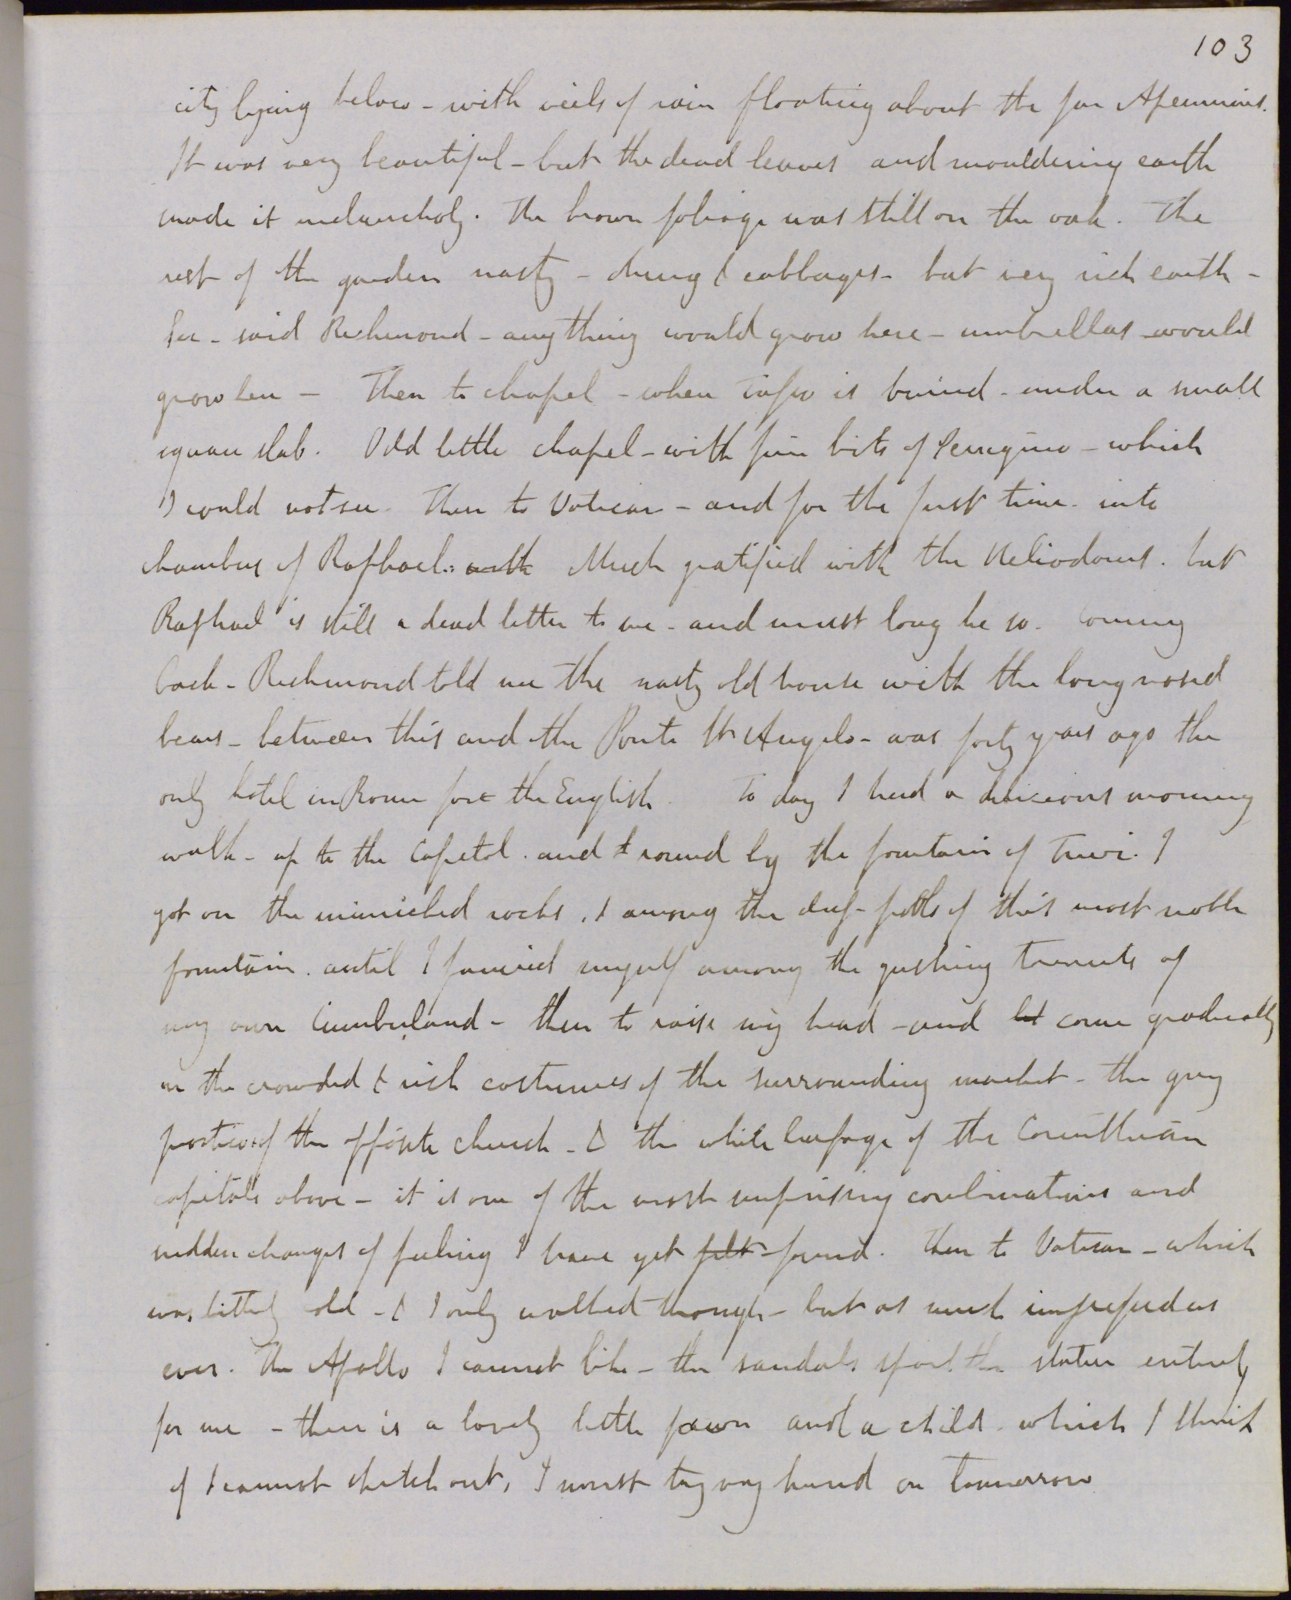 103
city lying below - with veils of rain floating about the far Apennines.
It was very beautiful - but the dead leaves and mouldering earth
made it melancholy. The brown foliage was still on the oak. The
rest of the garden nasty - dung & cabbages - but very rich earth -
Sir - said Richmond - anything would grow here - umbrellas would
grow here - Then to chapel - where Tasso is buried - under a small
square slab. Odd little chapel - with fine bits of Perugino - which
I could not see. Then to Vatican - and for the first time into
chambers of Raphael. with Much gratified with the Heliodorus. but
Raphael is still a dead letter to me - and must long be so. Coming
back - Richmond told me the nasty old house with the long nosed
bears - between this and the Ponte St Angelo - was forty years ago the
only hotel in Rome for the English. To day I had a delicious morning
walk - up to the Capitol. and round by the fountain of Trevi. I
got on the mimicked rocks, & among the deep falls of this most noble
fountain. until I fancied myself among the gushing torrents of
my own Cumberland - then to raise my head - and let come gradually
on the crowded & rich costumes of the surrounding market - the grey
portico of the opposite church - & the white leafage of the Corinthian
capitals above - it is one of the most surprising combinations and
sudden changes of feeling I have yet felt found. Then to Vatican - which
was bitterly cold - & I only walked through - but as much impressed as
ever. The Apollo I cannot like - the sandals spoil the statue entirely
for me - there is a lovely little fawn and a child which I think
if I cannot sketch out, I must try my hand on tomorrow